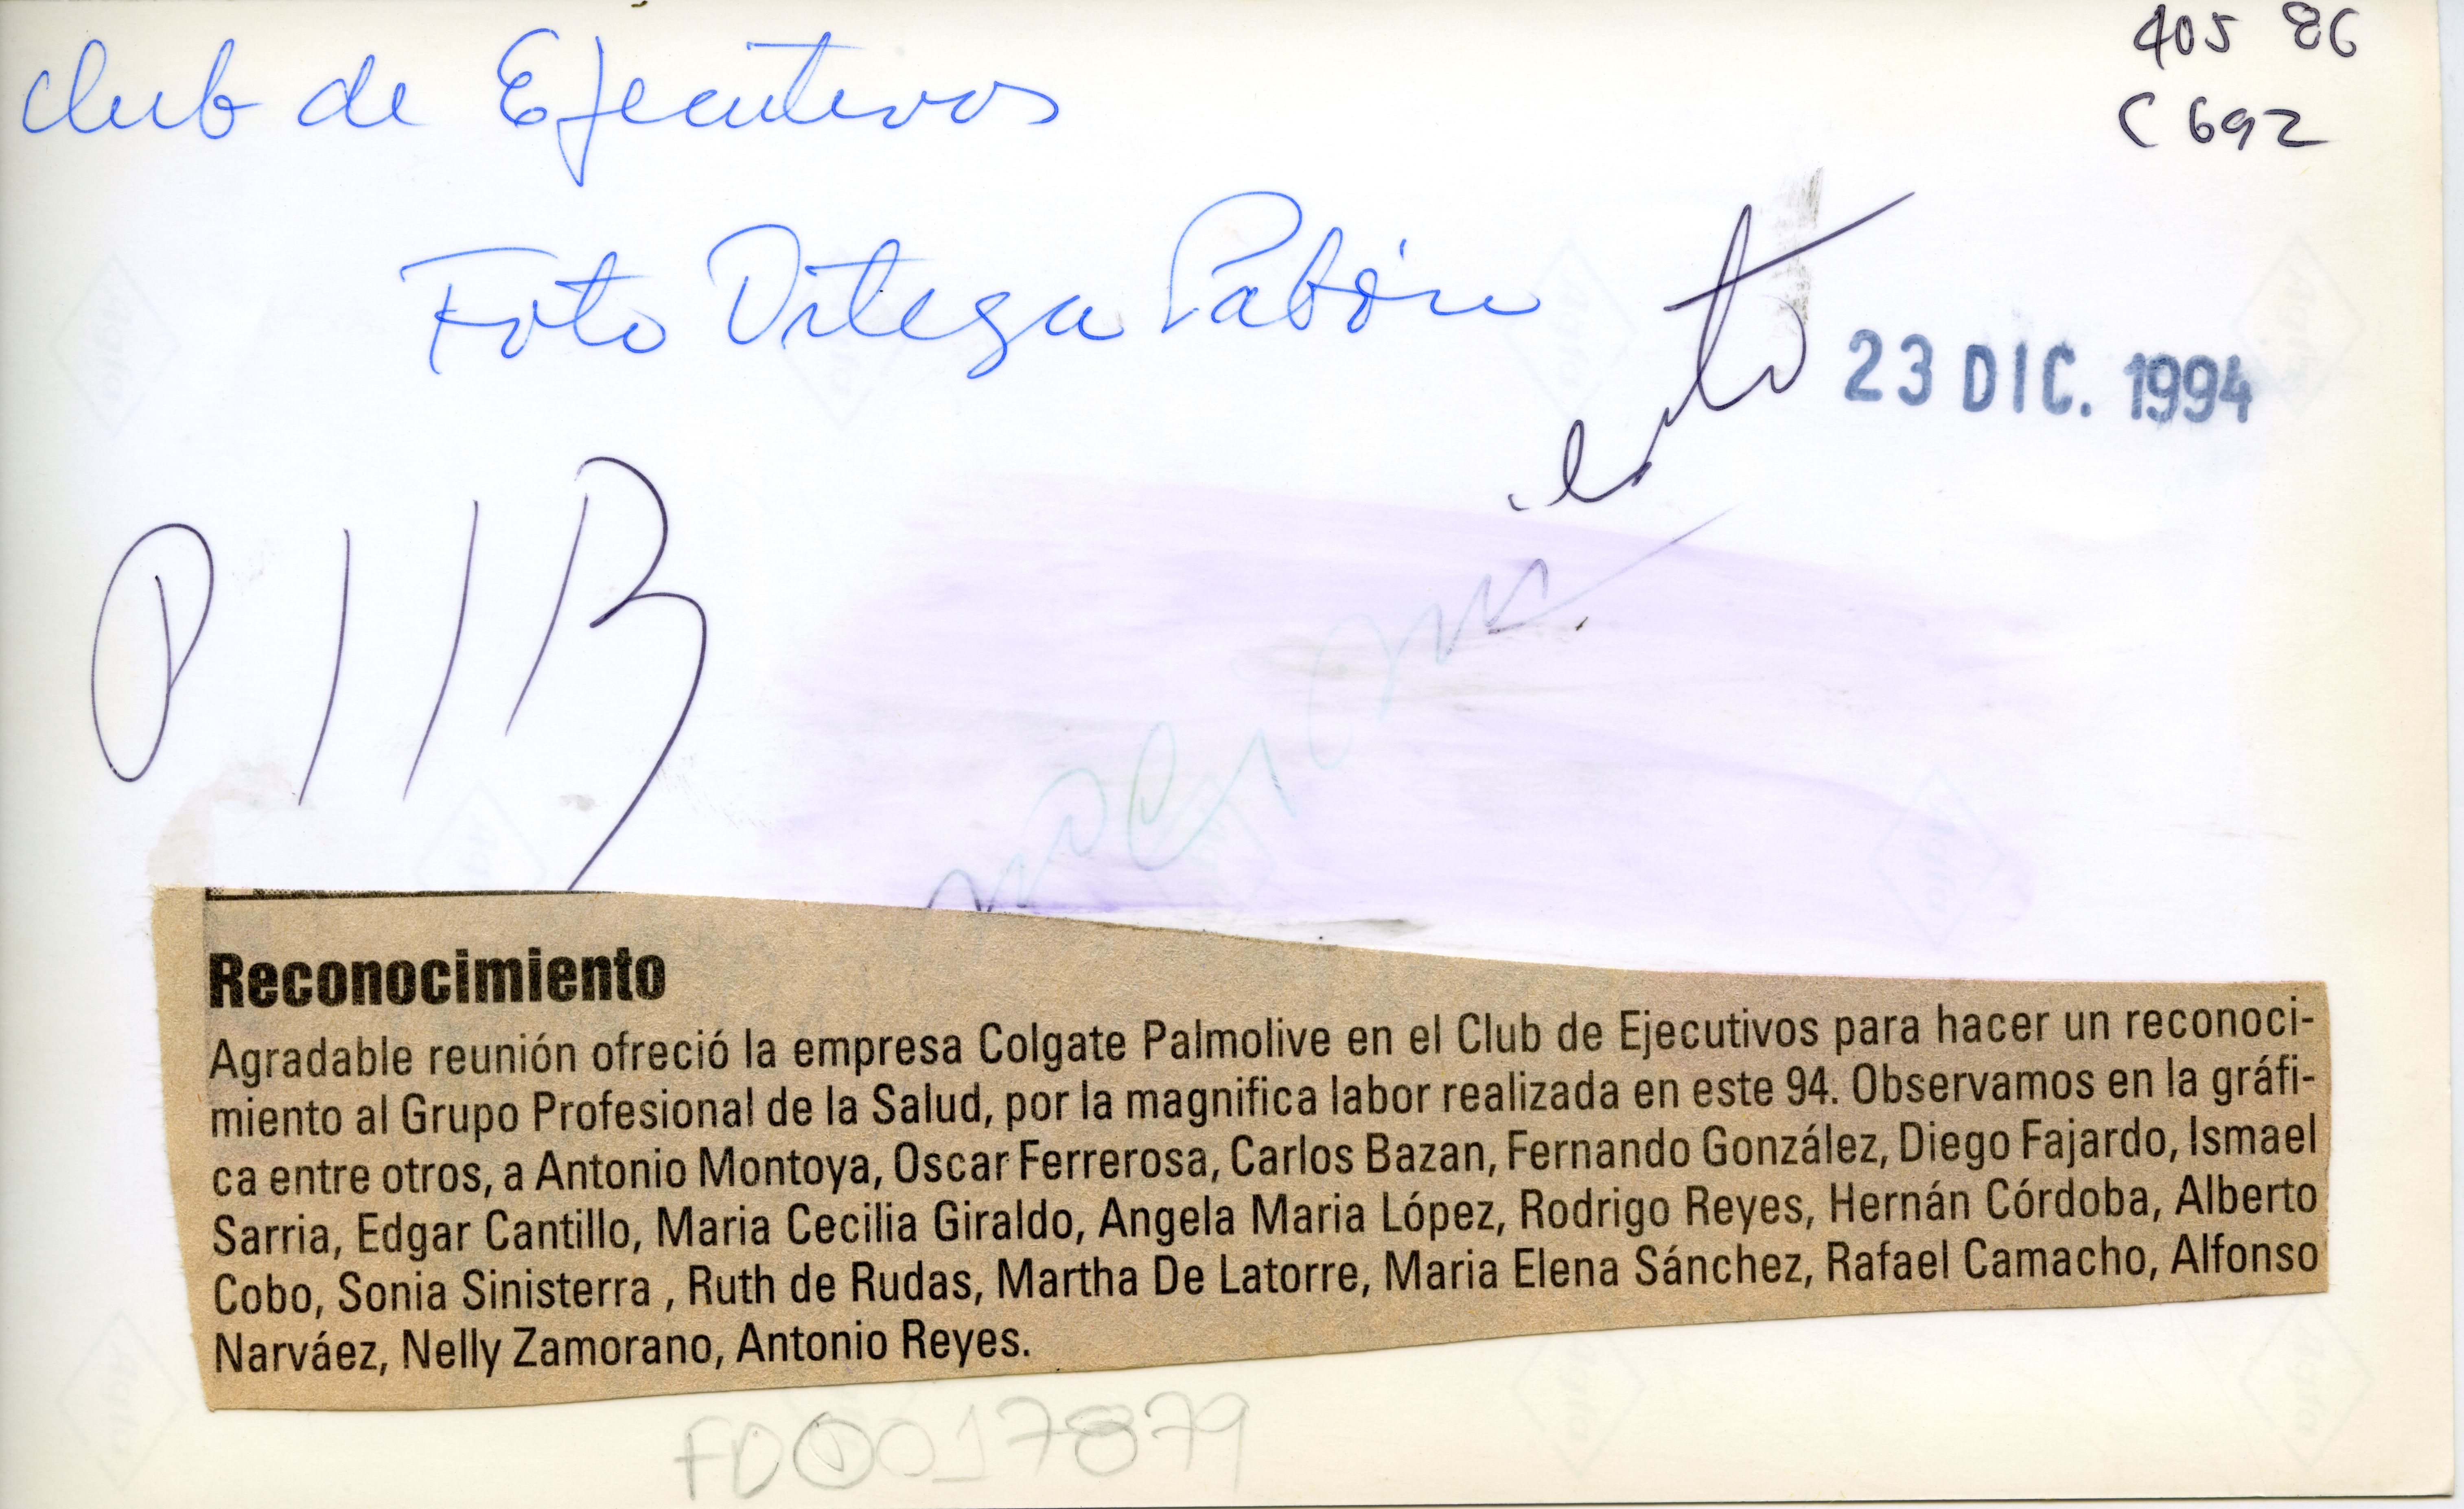 405 86
C 692
Club de Ejecutivos
Foto Ortega Pabón
23 DIC. 1994
Reconocimiento
Agradable reunión ofreció la empresa Colgate Palmolive en el Club de Ejecutivos para hacer un reconoci-
miento al Grupo Profesional de la Salud, por la magnifica labor realizada en este 94. Observamos en la gráfi-
ca entre otros, a Antonio Montoya, Oscar Ferrerosa, Carlos Bazan, Fernando González, Diego Fajardo, Ismael
Sarria, Edgar Cantillo, Maria Cecilia Giraldo, Angela Maria López, Rodrigo Reyes, Hernán Córdoba, Alberto
Cobo, Sonia Sinisterra , Ruth de Rudas, Martha De Latorre, Maria Elena Sánchez, Rafael Camacho, Alfonso
Narváez, Nelly Zamorano, Antonio Reyes.
FD0017879